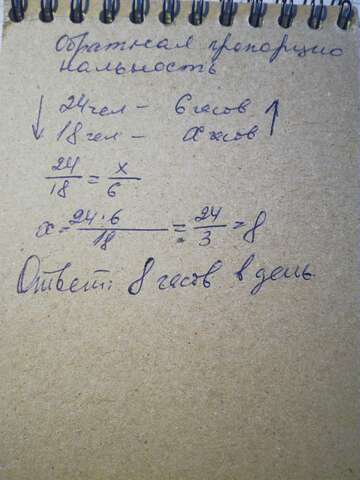 Обратная пропорцио
нальность
↓ 24 чел – 6 часов ↑
18 чел – x часов
24/18 = x/6
x = 24·6/18 = 24/3 = 8
Ответ: 8 часов в день.